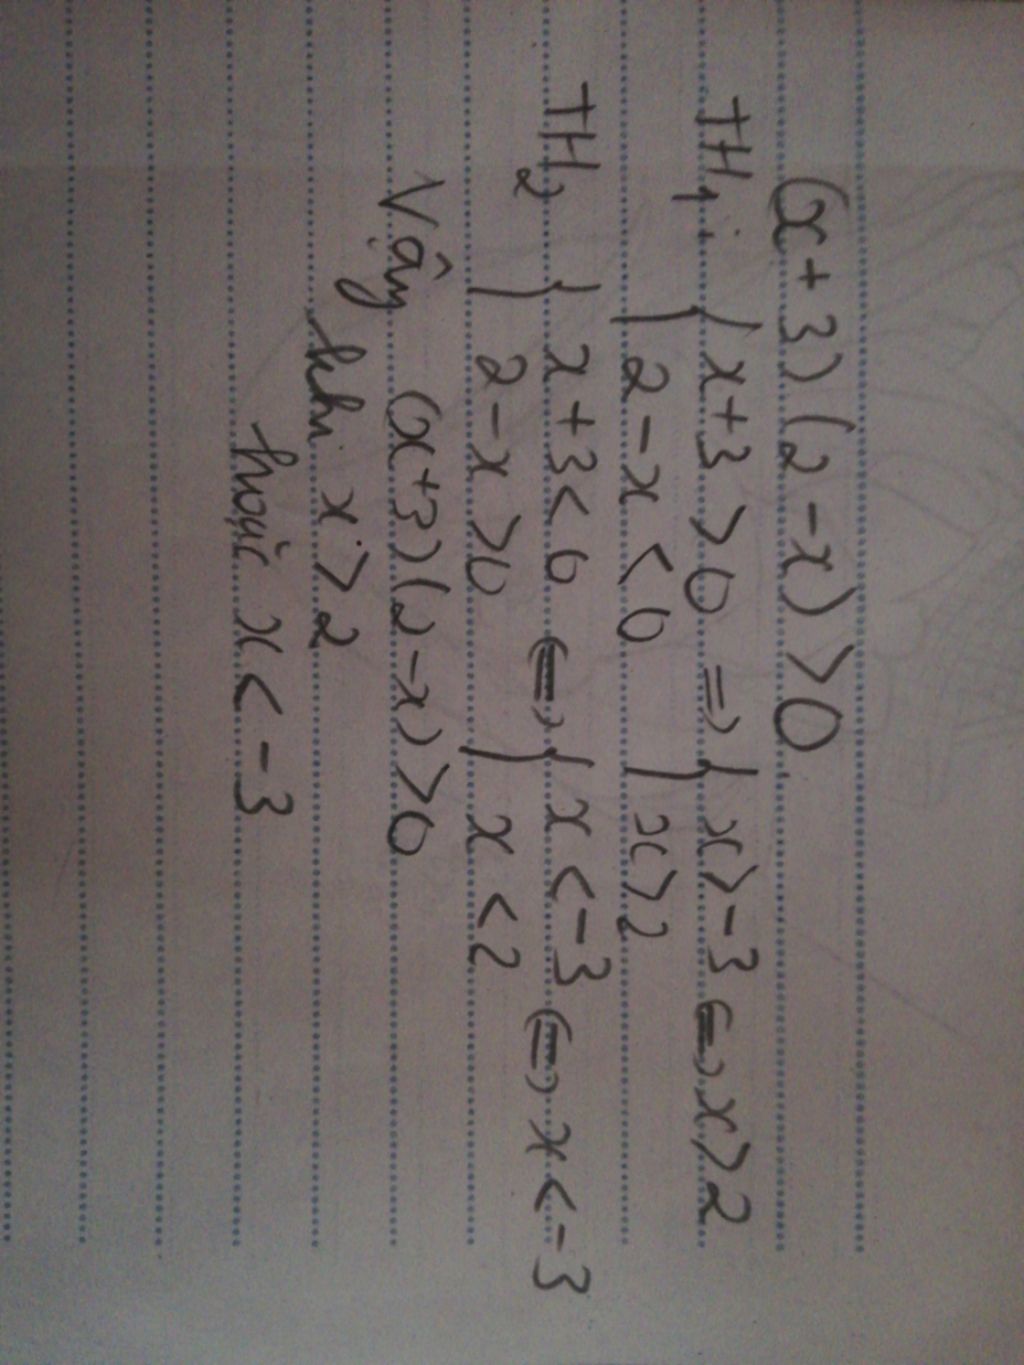 (x+3)(2-x)>0
TH1: { x+3>0 => { x>-3 <=> x>2
2-x<0 x>2
TH2 { x+3<0 <=> { x<-3 <=> x<-3
2-x>0 x<2
Vậy (x+3)(2-x)>0
khi x>2
hoặc x<-3